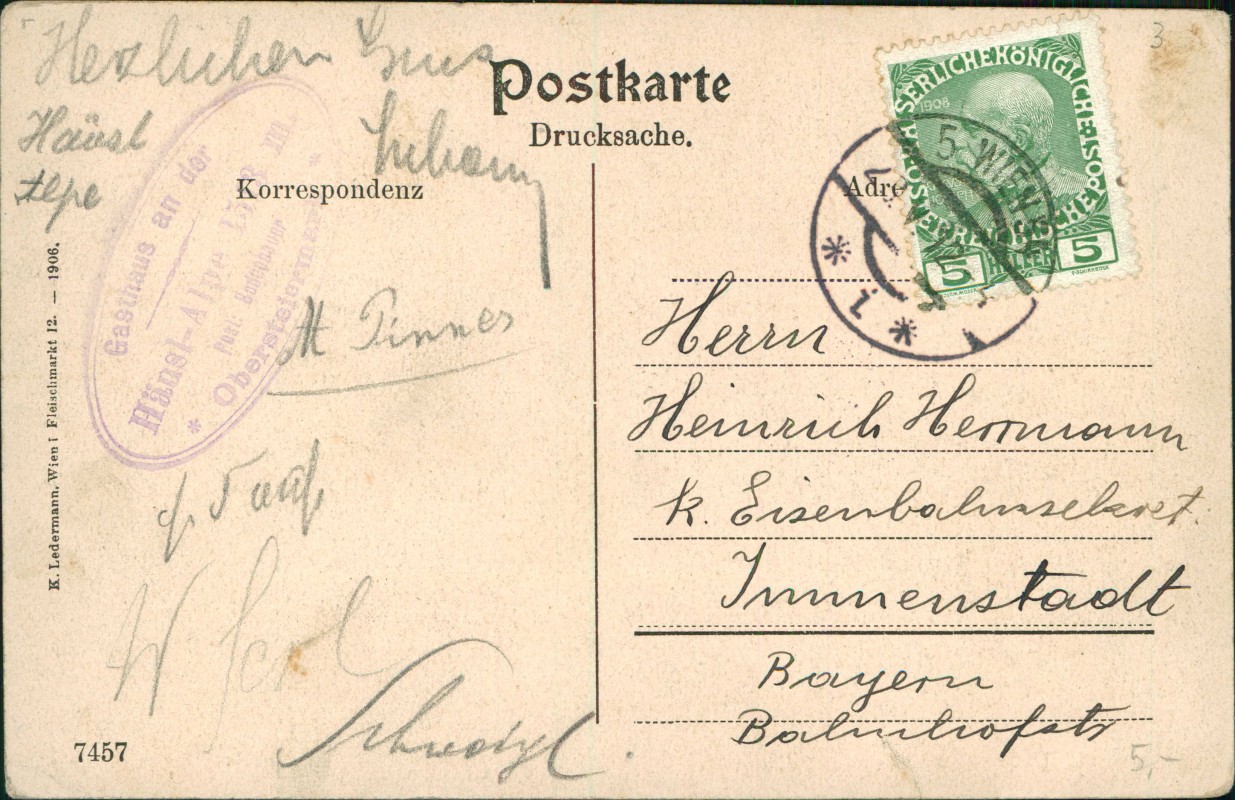 Herzlichen Gruss
Häusl
Alpe
Postkarte
Drucksache.
Korrespondenz
Gasthaus an der
Häusl-Alpe 1513 m
Post: Bodenbauer
* Obersteiermark *
M Pinner
W
7457
K. Ledermann, Wien I Fleischmarkt 12. — 1906.
KAISERLICHEKÖNIGLICHE
ÖSTERREICHISCHE POST
1908
5 HELLER 5
5 WIEN
* 1 *
Adre
Herrn
Heinrich Herrmann
k. Eisenbahnsekret.
Immenstadt
Bayern
Bahnhofstr
3
5,-